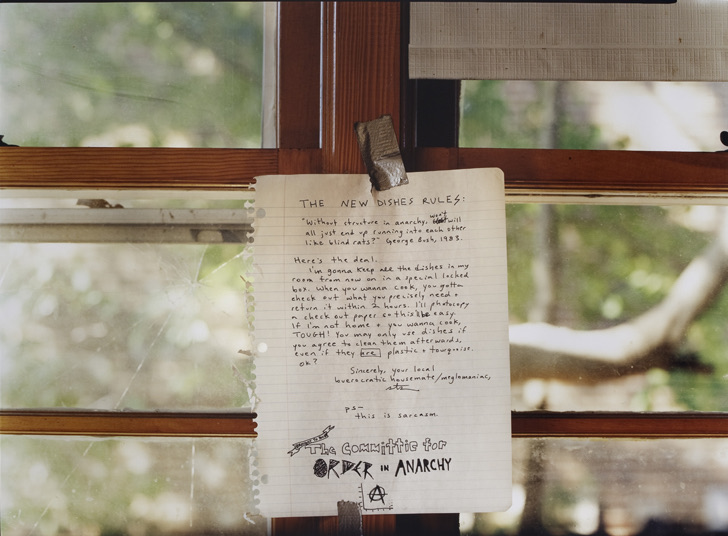 THE NEW DISHES RULES:
"Without structure in anarchy, won't will
all just end up running into each other
like blind rats?" George Bush, 1983.
Here's the deal.
I'm gonna keep all the dishes in my
room from now on in a special locked
box. When you wanna cook, you gotta
check out what you precisely need +
return it within 2 hours. I'll photocopy
a check out paper so this'll be easy.
If I'm not home + you wanna cook,
TOUGH! You may only use dishes if
you agree to clean them afterwards,
even if they are plastic +
ok?
Sincerely, your local
buerocratic housemate/meglomaniac,
ps-
this is sarcasm.
The Committie for
ORDER IN ANARCHY
A